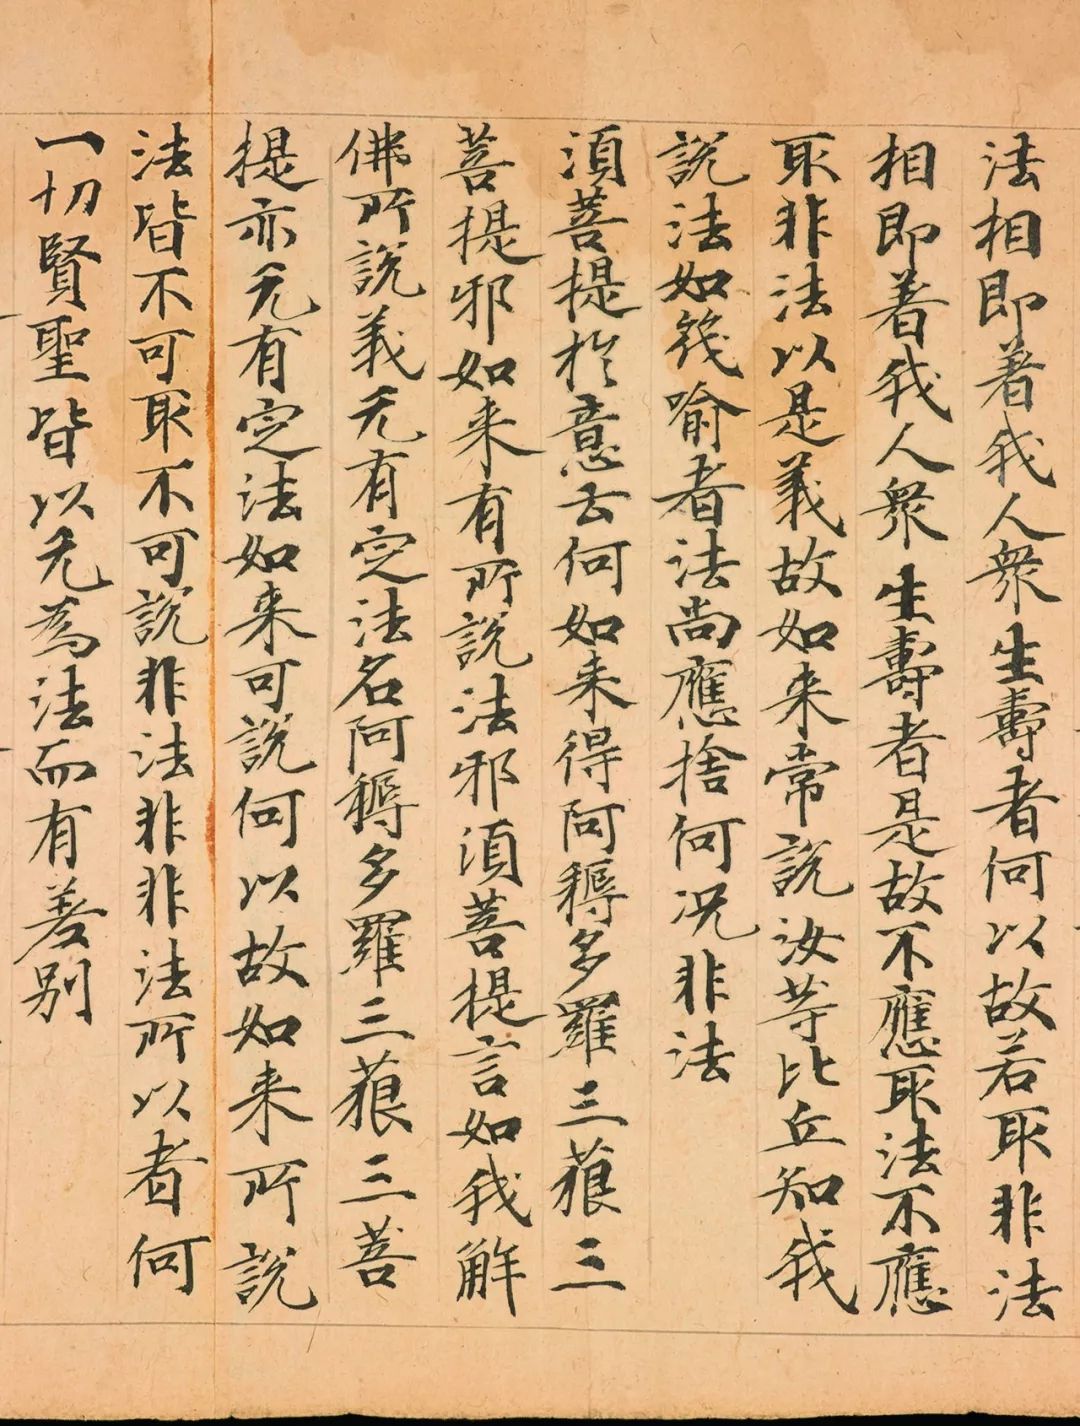 法相即著我人衆生壽者何以故若取非法
相即著我人衆生壽者是故不應取法不應
取非法以是義故如来常說汝等比丘知我
說法如筏喻者法尚應捨何况非法
湏菩提扵意云何如来得阿耨多羅三藐三
菩提邪如来有所說法邪湏菩提言如我解
佛所說義无有定法名阿耨多羅三藐三菩
提亦无有定法如来可說何以故如来所說
法皆不可取不可說非法非非法所以者何
一切賢聖皆以无為法而有差別